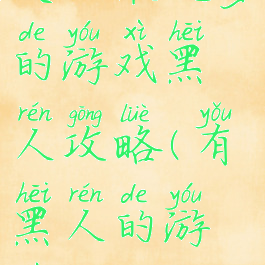 de yóu xì hēi
的游戏黑
rén gōng lüè yǒu
人攻略(有
hēi rén de yóu
黑人的游